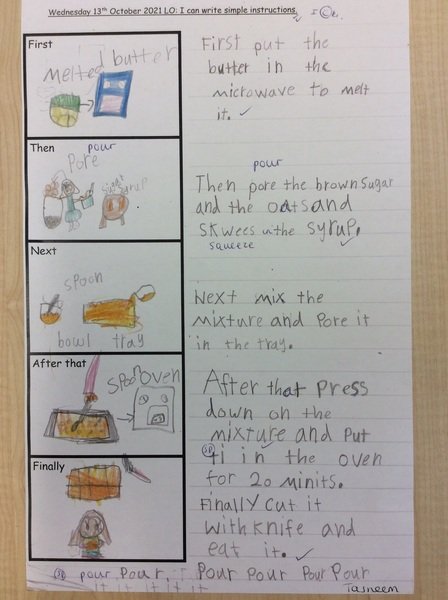 Wednesday 13th October 2021 LO: I can write simple instructions.
First
melted butter
First put the
butter in the
microwave to melt
it. ✓
Then
pour
Pore
sugar
syrup
pour
Then pore the brown sugar
and the oats and
skwees in the syrup.
squeeze
Next
spoon
bowl tray
Next mix the
mixture and Pore it
in the tray.
After that
spoon oven
After that Press
down on the
mixture and Put
ti in the oven
for 20 minits.
Finally
Finally cut it
with knife and
eat it. ✓
pour Pour Pour Pour Pour Pour
it it it it it
Tasneem